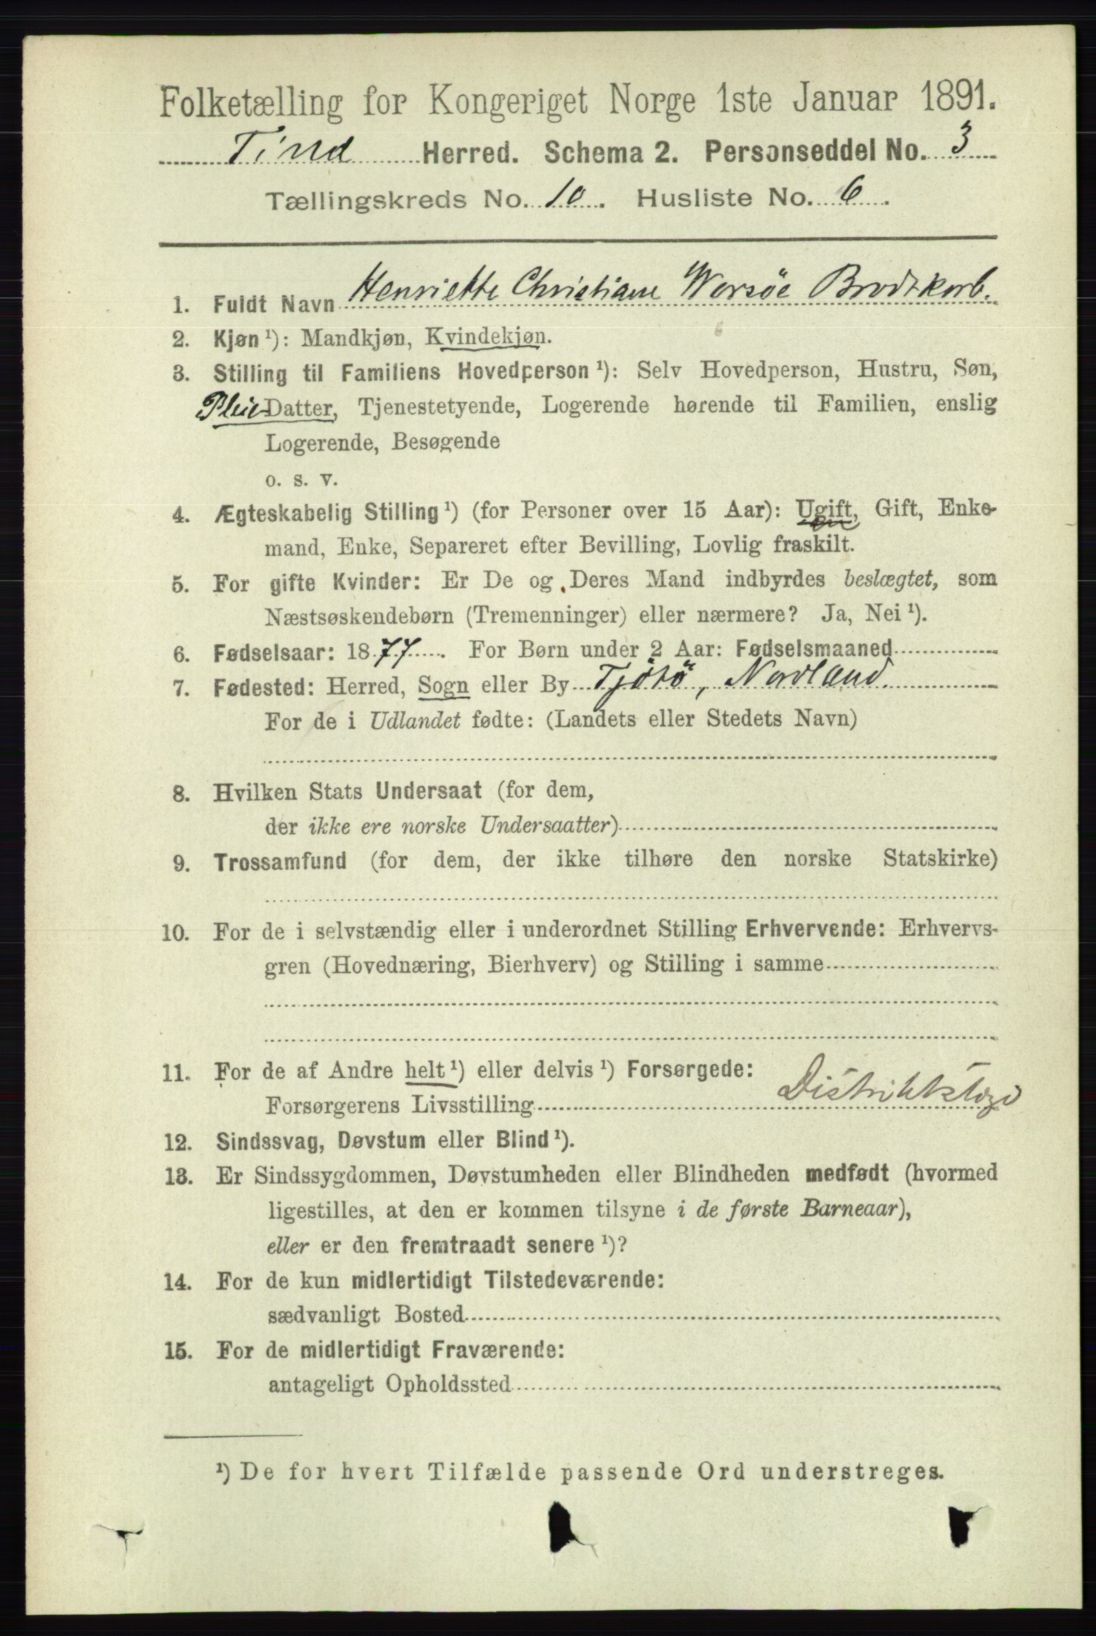 Folketælling for Kongeriget Norge 1ste Januar 1891.
Tind Herred. Schema 2. Personseddel No. 3
Tællingskreds No. 10. Husliste No. 6.
1. Fuldt Navn Henriette Christiane Worsøe Brodtkorb.
2. Kjøn ¹): Mandkjøn, Kvindekjøn.
3. Stilling til Familiens Hovedperson ¹): Selv Hovedperson, Hustru, Søn,
Pleie Datter, Tjenestetyende, Logerende hørende til Familien, enslig
Logerende, Besøgende
o. s. v.
4. Ægteskabelig Stilling ¹) (for Personer over 15 Aar): Ugift, Gift, Enke-
mand, Enke, Separeret efter Bevilling, Lovlig fraskilt.
5. For gifte Kvinder: Er De og Deres Mand indbyrdes beslægtet, som
Næstsøskendebørn (Tremenninger) eller nærmere? Ja, Nei ¹).
6. Fødselsaar: 1877. For Børn under 2 Aar: Fødselsmaaned
7. Fødested: Herred, Sogn eller By Tjötö, Nordland.
For de i Udlandet fødte: (Landets eller Stedets Navn)
8. Hvilken Stats Undersaat (for dem,
der ikke ere norske Undersaatter)
9. Trossamfund (for dem, der ikke tilhøre den norske Statskirke)
10. For de i selvstændig eller i underordnet Stilling Erhvervende: Erhvervs-
gren (Hovednæring, Bierhverv) og Stilling i samme
11. For de af Andre helt ¹) eller delvis ¹) Forsørgede:
Forsørgerens Livsstilling Distriktslæge
12. Sindssvag, Døvstum eller Blind ¹).
13. Er Sindssygdommen, Døvstumheden eller Blindheden medfødt (hvormed
ligestilles, at den er kommen tilsyne i de første Barneaar),
eller er den fremtraadt senere ¹)?
14. For de kun midlertidigt Tilstedeværende:
sædvanligt Bosted
15. For de midlertidigt Fraværende:
antageligt Opholdssted
¹) De for hvert Tilfælde passende Ord understreges.